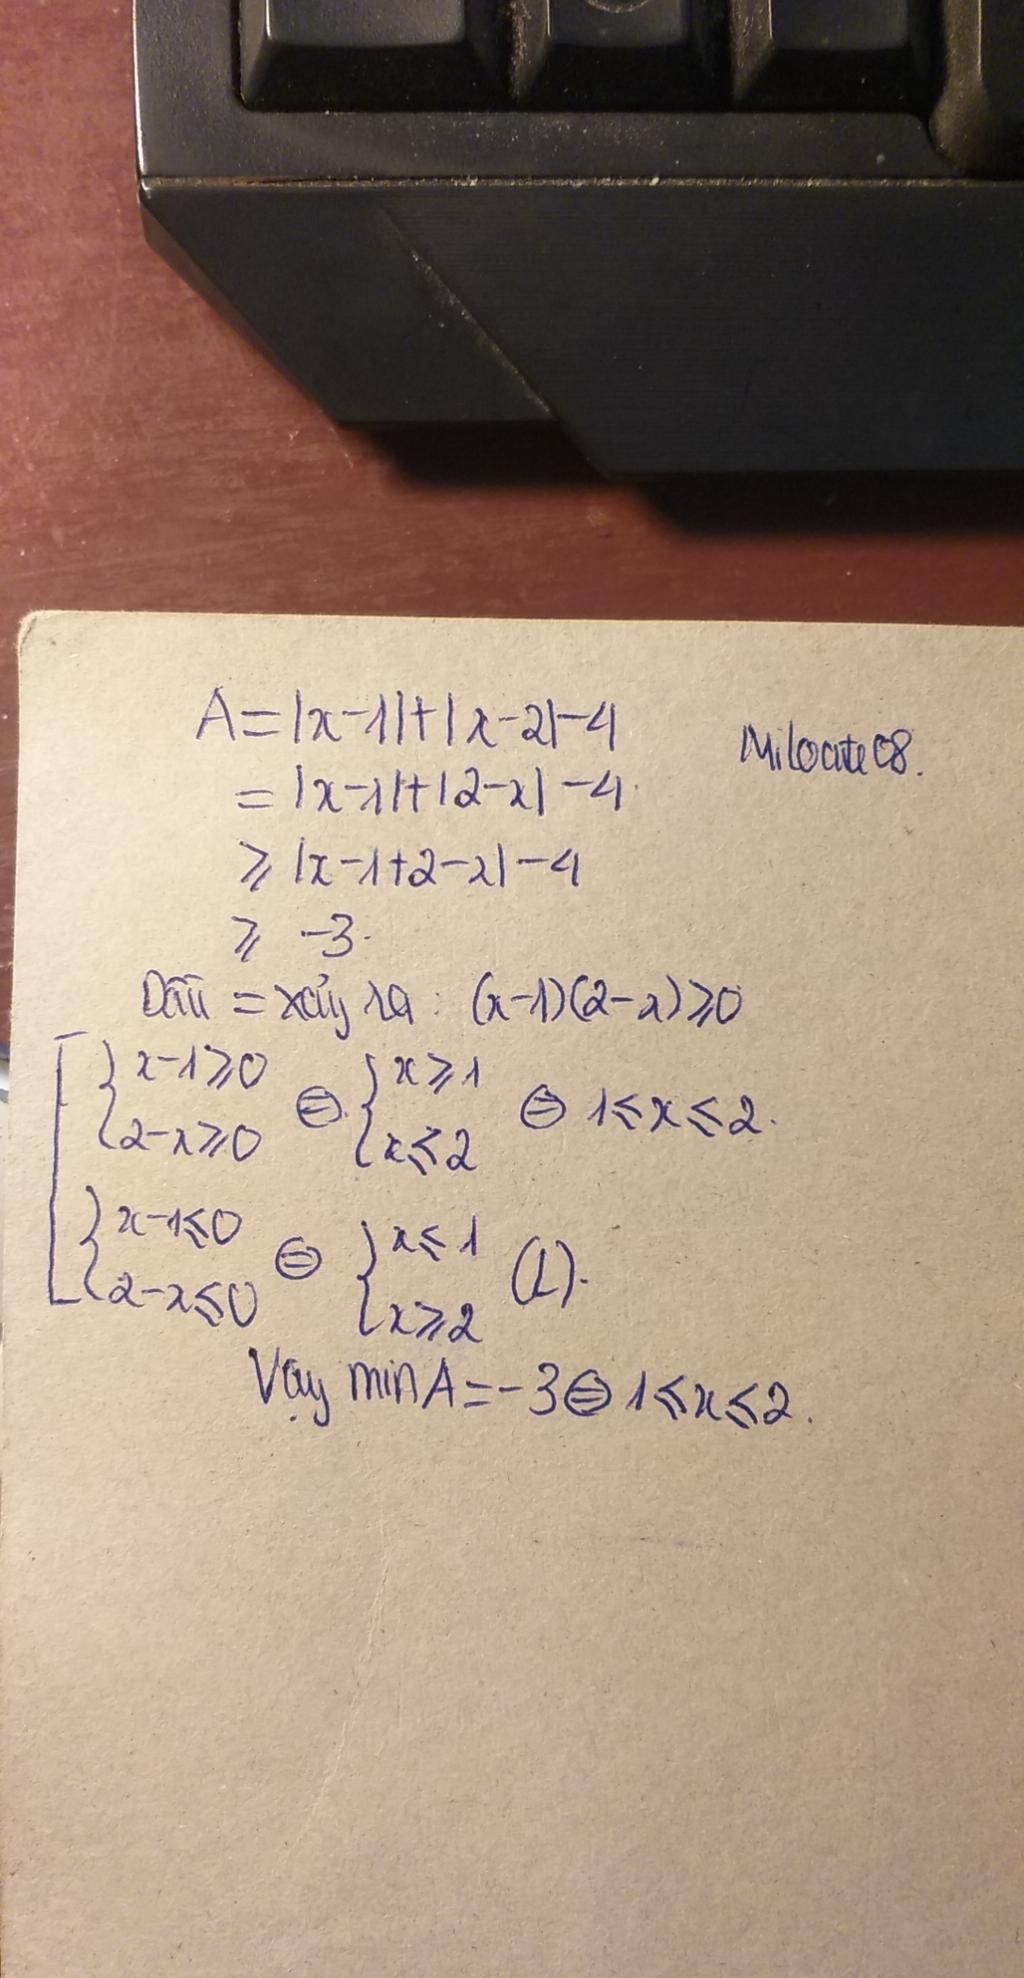 A = |x-1|+|x-2|-4
Milocate08.
= |x-1|+|2-x|-4
⩾ |x-1+2-x|-4
⩾ -3.
Dấu = xảy ra: (x-1)(2-x)⩾0
[ { x-1⩾0 ⇔ { x⩾1 ⇔ 1⩽x⩽2.
2-x⩾0 x⩽2
{ x-1⩽0 ⇔ { x⩽1 (L).
2-x⩽0 x⩾2
Vậy min A = -3 ⇔ 1⩽x⩽2.